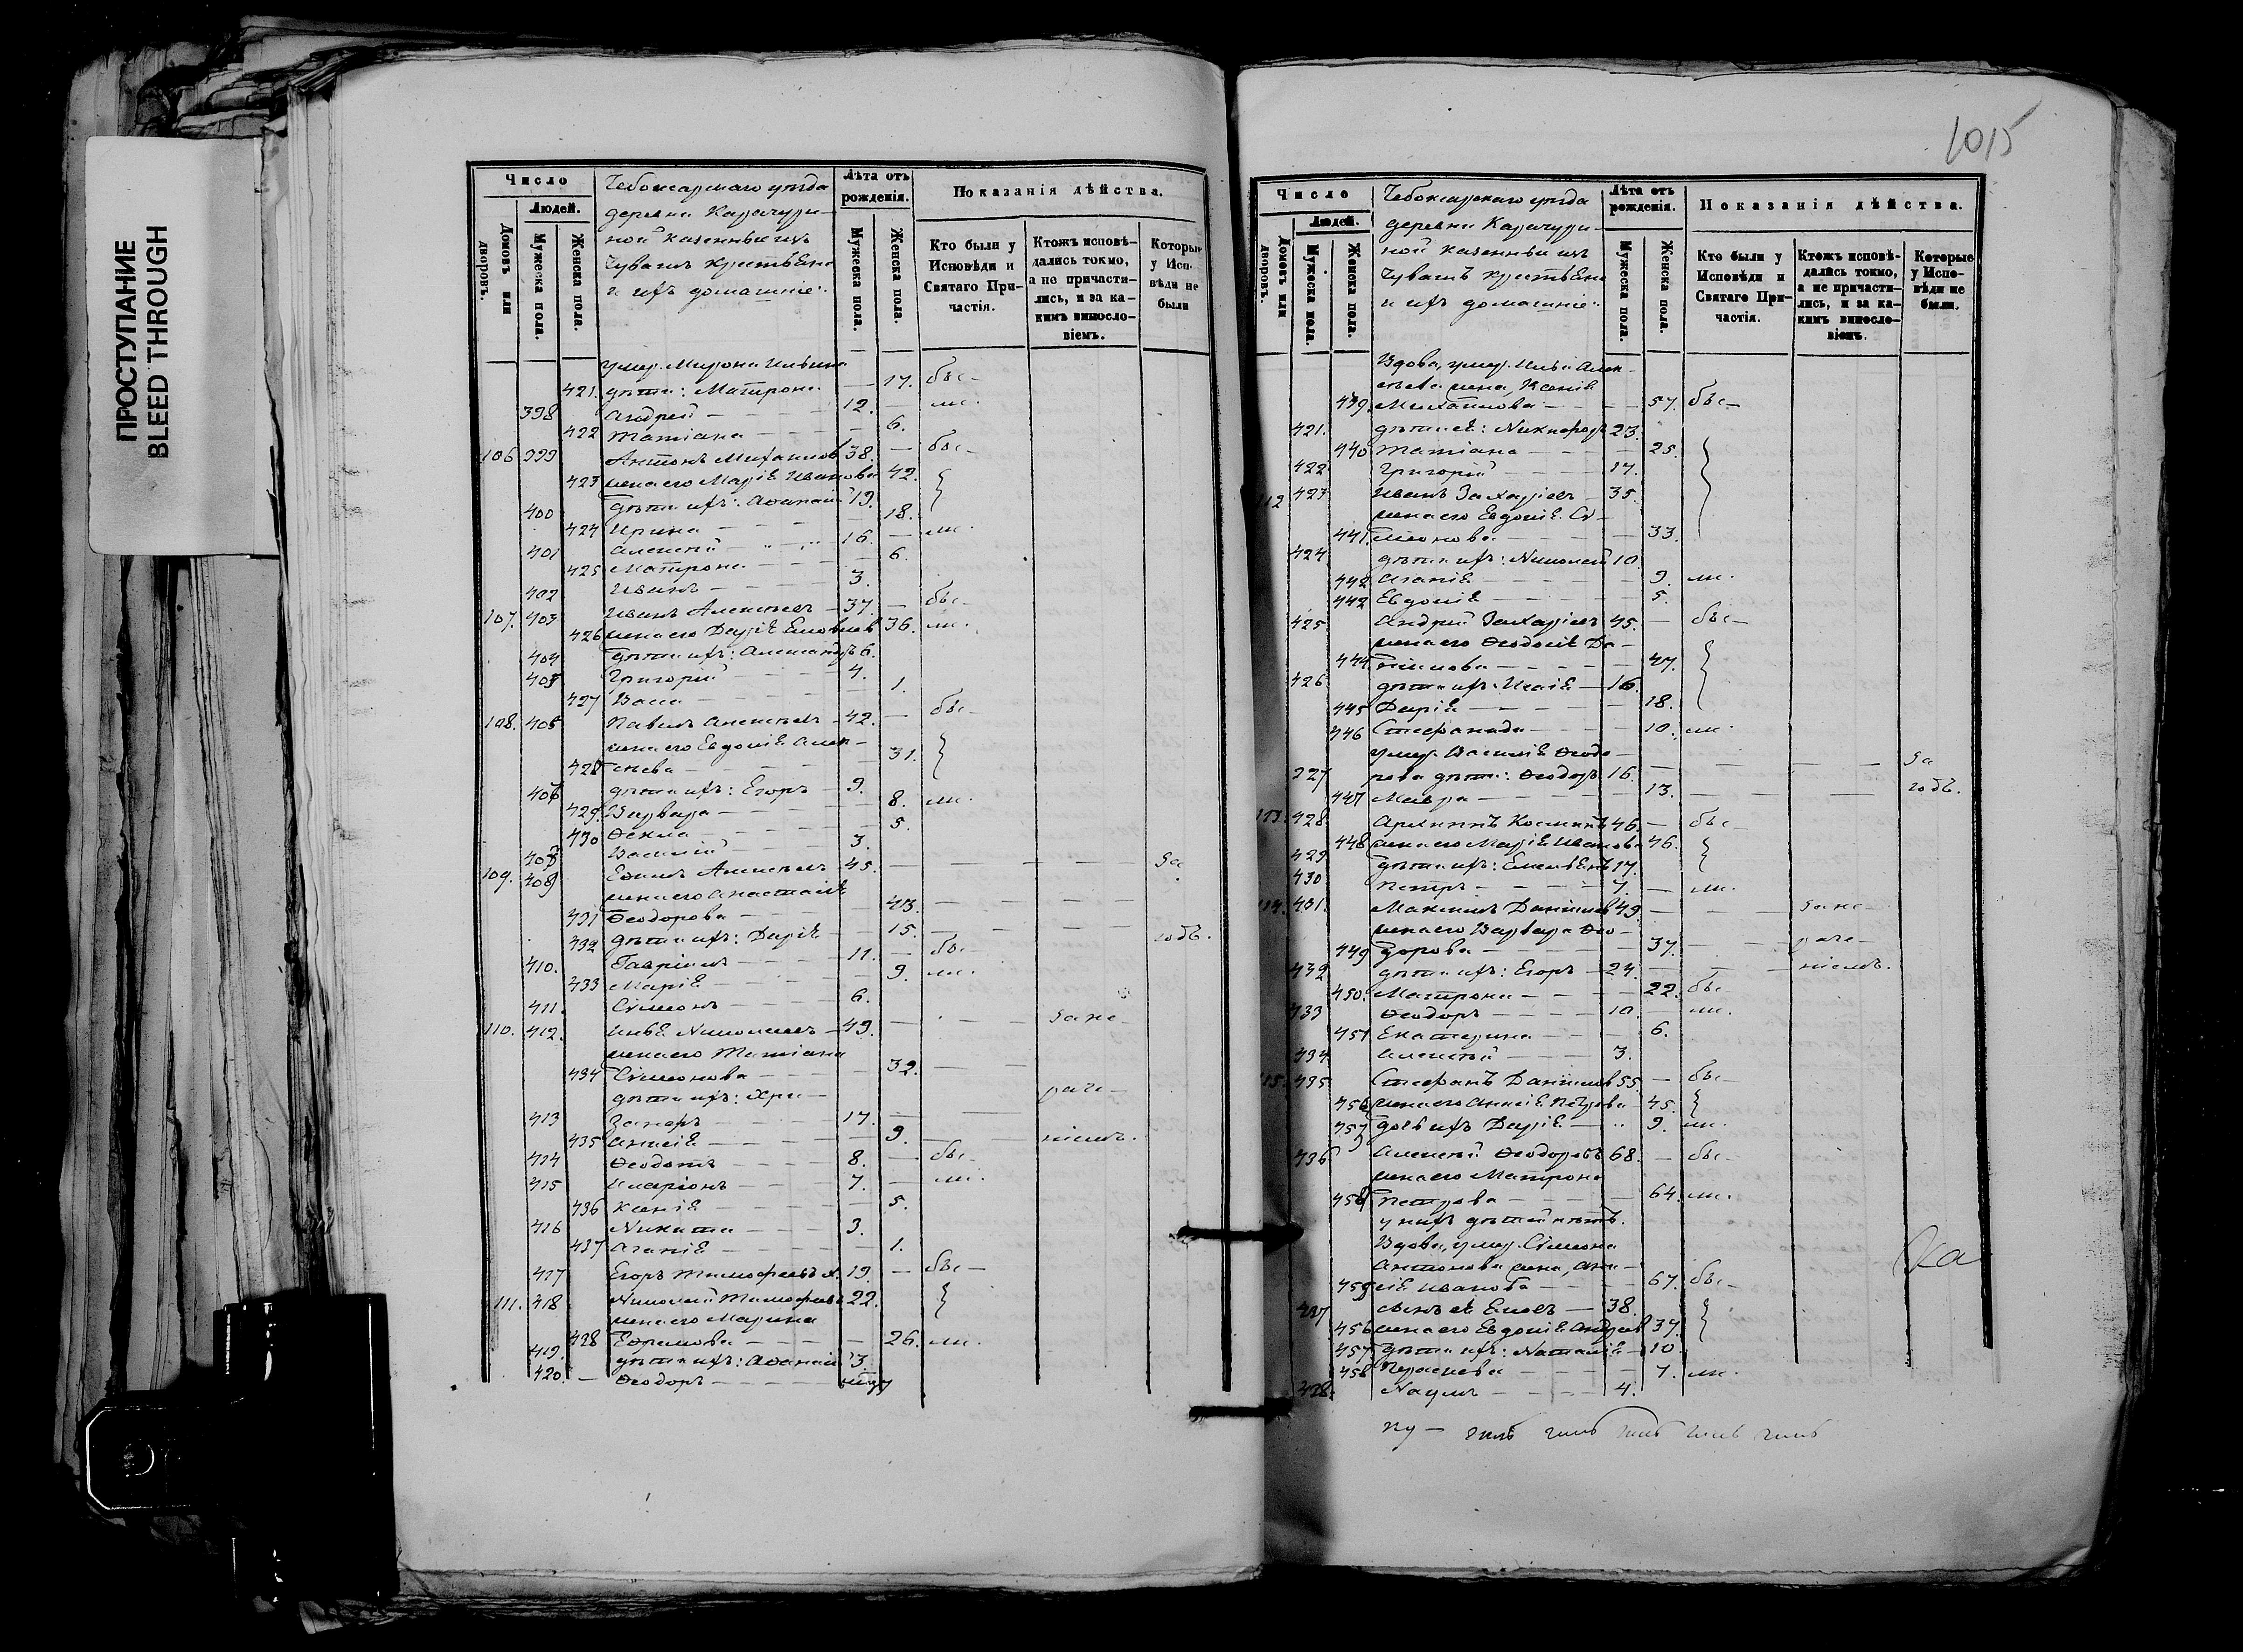 ПРОСТУПАНИЕ
BLEED THROUGH
Число
Людей.
Домовъ или дворовъ.
Мужеска пола.
Женска пола.
Чебоксарскаго уѣзда
деревни Карачури-
ной казенныхъ изъ
Чувашъ крестьяне
и ихъ домашніе:
Лѣта отъ рожденія.
Мужеска пола.
Женска пола.
Показанія дѣйства.
Кто были у Исповѣди и Святаго Причастія.
Ктожъ исповѣдались токмо, а не причастились, и за какимъ винословіемъ.
Которые у Исповѣди не были
умер. Мирона Ильина
421. дѣти: Матрона — 17. бы-
398 Андрей — 12. — ли.
422 Татіана — 6.
106 399 Антонъ Михайловъ 38. — бы-
423 жена его Марія Иванова 42.
400 дѣти ихъ: Афанасій 19.
424 Ирина — 18.
401 Алексѣй — 16. — ли.
425 Матрона — 6.
402 Иванъ — 3.
107. 403 Иванъ Алексѣевъ — 37. — бы-
426 жена его Дарія 36. ли.
404 дѣти ихъ: Александръ 6.
405 Григорій — 4.
427 Васса — 1.
108. 405 Павелъ Алексѣевъ — 42. — бы-
жена его Евдокія Алек-
428 сѣева — 31.
406 дѣти ихъ: Егоръ — 9.
429. Варвара — 8. ли.
430 Ѳекла — 5.
407 Василій — 3.
109. 408 Ефимъ Алексѣевъ 45. — за
жена его Анастасія
431 Ѳеодорова — 43.
432 дѣти ихъ: Дарія — 15. — годъ.
410. Гавріилъ — 11. — бы-
433 Марія — 9. ли.
411. Сѵмеонъ — 6.
110. 412. Илья Николаевъ — 49. — за не-
жена его Татіана
434 Сѵмеонова — 39.
дѣти ихъ: Хри- раче-
413 занфъ 17.
435 Анисія — 9. ніемъ.
414 Ѳеодотъ — 8. — бы-
415 Иларіонъ — 7. — ли.
436 Ксенія — 5.
416 Никита — 3.
437 Агапія — 1.
417 Егоръ Тимофеевъ х. 19. — бы-
111. 418 Николай Тимофеевъ 22.
жена его Марина
428 Ефремова — 26. ли.
419. дѣти ихъ: Афанасій 3.
420. — Ѳеодоръ —
1015
Число
Людей.
Домовъ или дворовъ.
Мужеска пола.
Женска пола.
Чебоксарскаго уѣзда
деревни Карачури-
ной казенныхъ изъ
Чувашъ крестьяне
и ихъ домашніе:
Лѣта отъ рожденія.
Мужеска пола.
Женска пола.
Показанія дѣйства.
Кто были у Исповѣди и Святаго Причастія.
Ктожъ исповѣдались токмо, а не причастились, и за какимъ винословіемъ.
Которые у Исповѣди не были.
Вдова, умер. Ильи Алек-
сѣева жена, Ксенія
439. Михайлова — 57. бы-
421. дѣти ея: Никифоръ 23.
440 Татіана — 25.
422 Григорій — 17.
112 423 Иванъ Захаріевъ — 35.
жена его Евдокія Сѵ-
441. меонова — 33.
424 дѣти ихъ: Николай 10.
442 Агапія — 9. ли.
442 Евдокія — 5.
425 Андрей Захаріевъ 45. — бы-
жена его Ѳеодосія Да-
444 ніилова — 47.
426 дѣти ихъ: Исаія — 16.
445 Дарія — 18.
446 Стефанида — 10. ли.
умер. Василія Ѳеодо-
227 рова дѣти: Ѳеодоръ 16. — за
447 Мавра — 13. — годъ.
113. 428 Архиппъ Косминъ 46. — бы-
448 жена его Марія Иванова 46.
429 дѣти ихъ: Емельянъ 17.
430 Петръ — 7. — ли.
114. 431. Максимъ Даниловъ 49. — за не-
жена его Варвара Ѳео-
449 дорова — 37. — раче-
432 дѣти ихъ: Егоръ — 24. — ніемъ.
450. Матрона — 22. бы-
433 Ѳеодоръ — 10. — ли.
451 Екатерина — 6.
434 Алексѣй — 3.
115. 435. Стефанъ Даниловъ 55. — бы-
456 жена его Анисія Петрова 45.
457 дочь ихъ Дарія — 9. ли.
436 Алексѣй Ѳеодоровъ 68. — бы-
жена его Матрона
458 Петрова — 64. ли.
у нихъ дѣтей нѣтъ.
Вдова, умер. Сѵмеона
Антонова жена, Ана-
459 сія Иванова — 67. бы-
437 сынъ ея 38.
456 жена его Евдокія 37.
457 дѣти ихъ: Наталія — 10.
458 — 7. ли.
438. Наумъ — 4.
ка